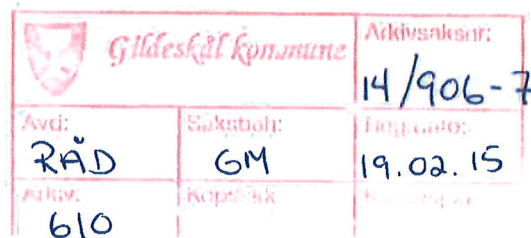 Gildeskål kommune
Arkivsaksnr:
14/906-7
Avd:
Saksbeh:
RÅD
GM
19.02.15
Arkiv:
610